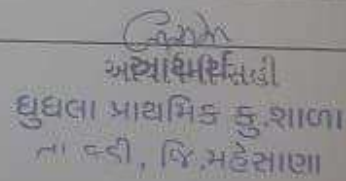 સહી
ઘુઘલા પ્રાથમિક કુ.શાળા
તા કડી, જિ.મહેસાણા